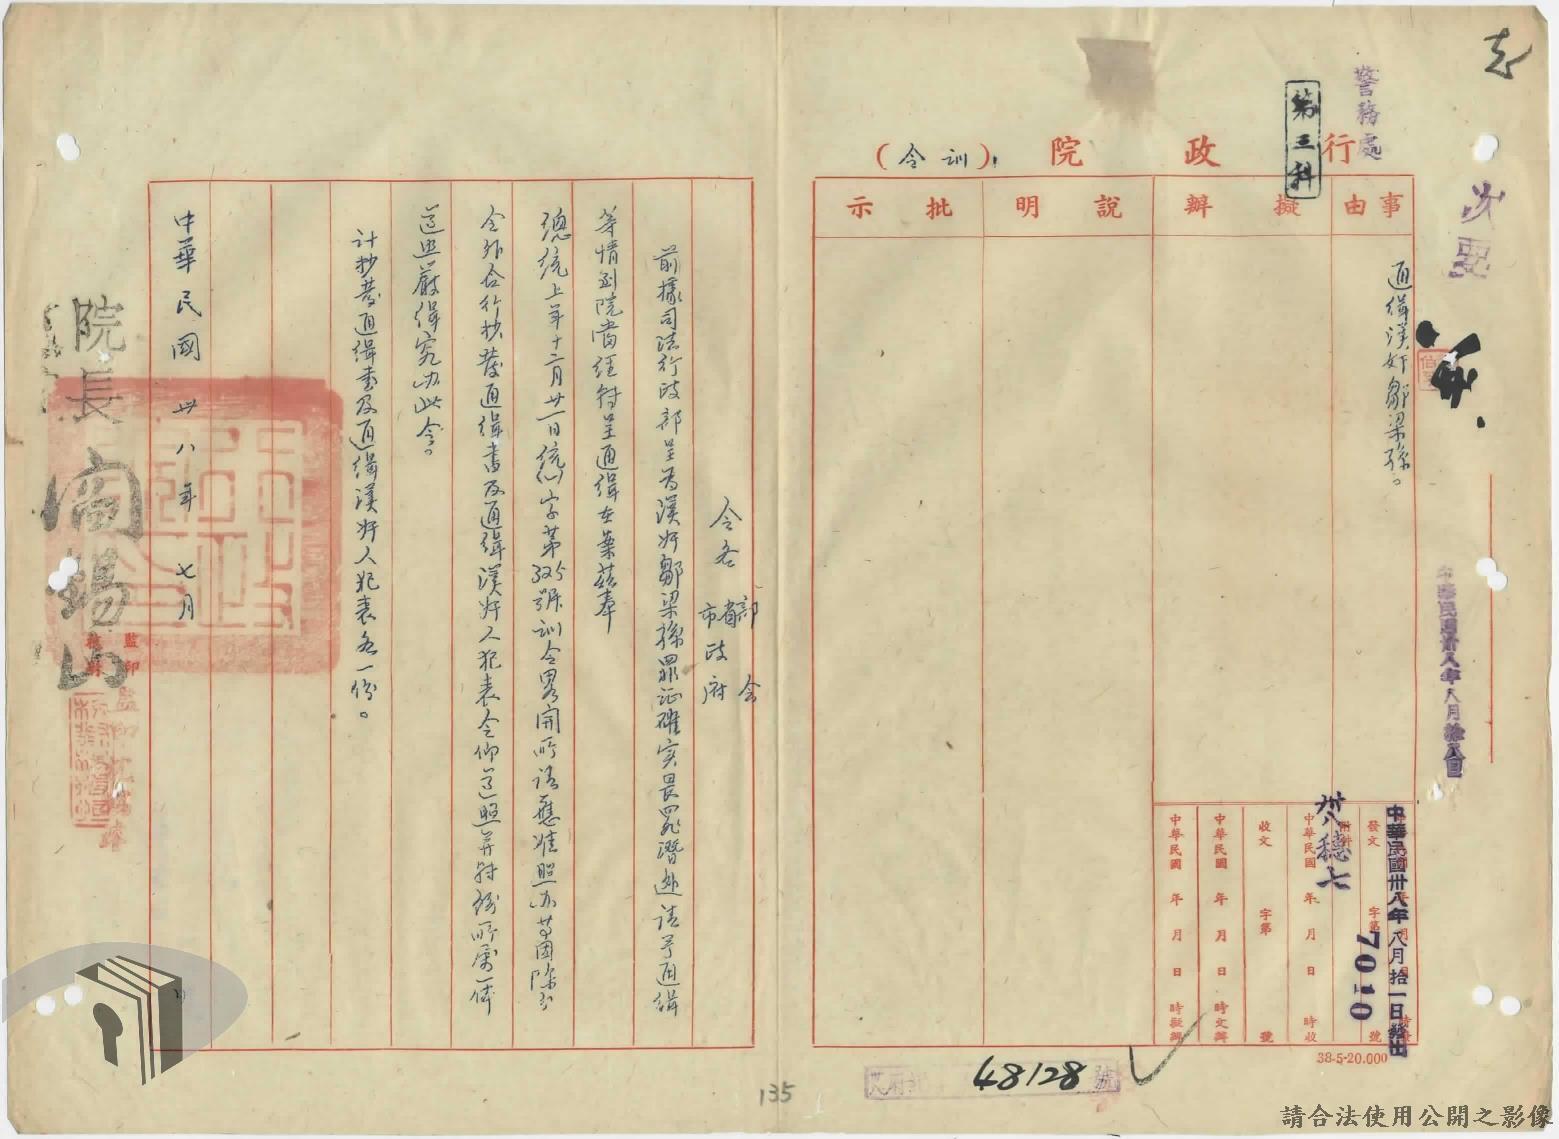 行政院（訓令）
警務處
第三科
次要
事由
擬辦
說明
批示
通緝漢奸鄒梁孫。
中華民國卅八年八月拾一日發出
卅八穗七
7010
發文 字第 號
附件
中華民國 年 月 日 時收
收文 字第 號
中華民國 年 月 日 時交辦
中華民國 年 月 日 時擬辦
38-5-20.000
48128
號
令各部會
省市政府
前據司法行政部呈為漢奸鄒梁孫罪証確实畏罪潛逃請予通緝
等情到院當經轉呈通緝在案茲奉
總統上年十二月廿一日統 字第325號訓令畧開所請應准照办等因除分
令外合行抄發通緝書及通緝漢奸人犯表令仰遵照并轉飭所屬一体
遵照嚴緝究办此令。
計抄發通緝書及通緝漢奸人犯表各一份。
中華民國卅八年七月
院長閻錫山
監印
135
請合法使用公開之影像